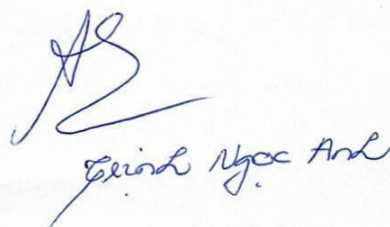 Trịnh Ngọc Anh